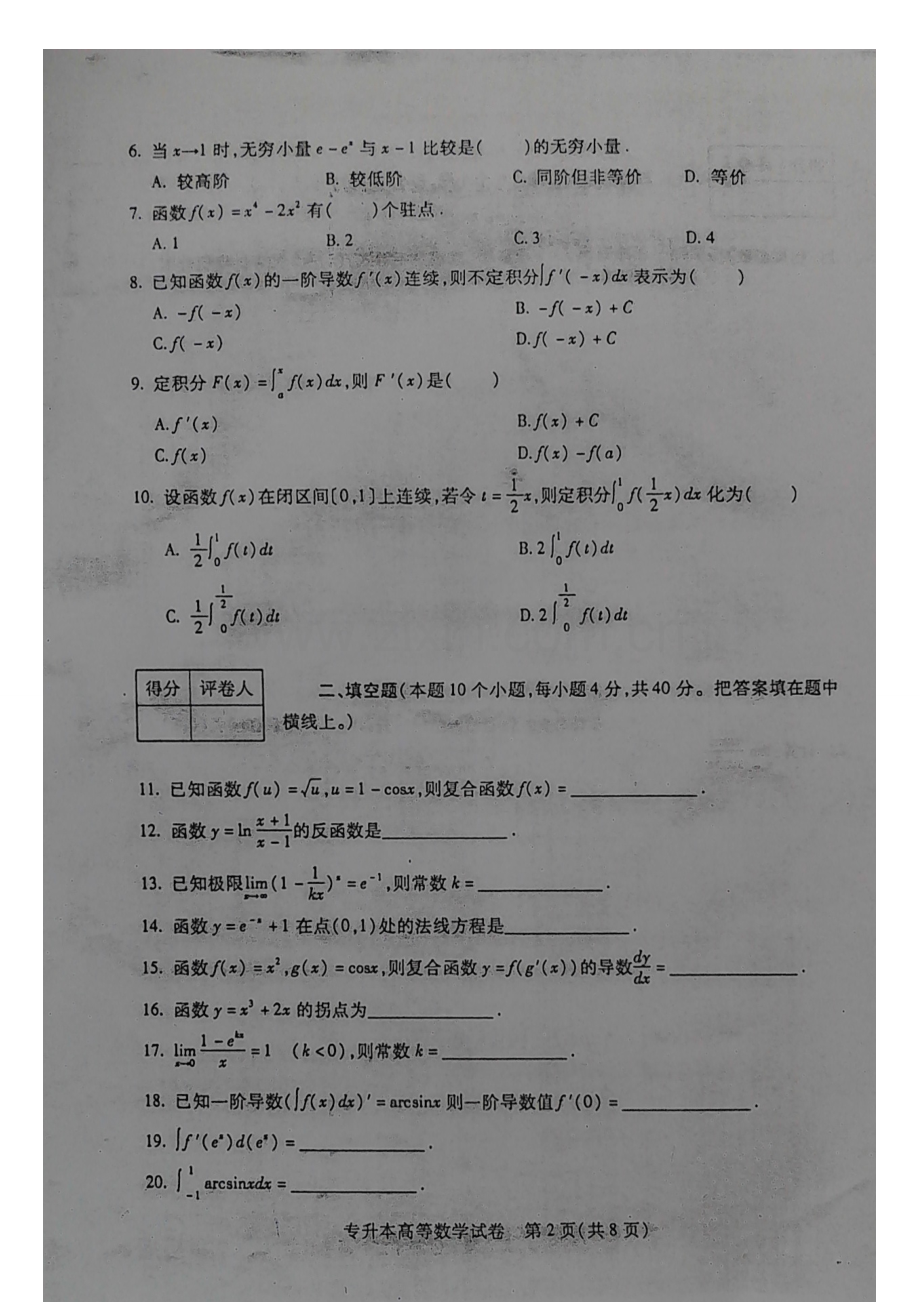 6. 当 x→1 时,无穷小量 e - eˣ 与 x - 1 比较是(  )的无穷小量.
A. 较高阶  B. 较低阶  C. 同阶但非等价  D. 等价
7. 函数 f(x) = x⁴ - 2x² 有(  )个驻点.
A. 1  B. 2  C. 3  D. 4
8. 已知函数 f(x)的一阶导数 f′(x)连续,则不定积分∫f′( - x)dx 表示为(  )
A. -f( - x)  B. -f( - x) + C
C. f( - x)  D. f( - x) + C
9. 定积分 F(x) = ∫ₐˣ f(x)dx,则 F′(x)是(  )
A. f′(x)  B. f(x) + C
C. f(x)  D. f(x) - f(a)
10. 设函数 f(x)在闭区间[0,1]上连续,若令 t = 1/2 x,则定积分∫₀¹ f(1/2 x)dx 化为(  )
A. 1/2 ∫₀¹ f(t)dt  B. 2∫₀¹ f(t)dt
C. 1/2 ∫₀^(1/2) f(t)dt  D. 2∫₀^(1/2) f(t)dt
得分 评卷人 二、填空题(本题 10 个小题,每小题 4 分,共 40 分。把答案填在题中
横线上。)
11. 已知函数 f(u) = √u,u = 1 - cosx,则复合函数 f(x) = ________.
12. 函数 y = ln (x + 1)/(x - 1) 的反函数是________.
13. 已知极限 lim(x→∞) (1 - 1/(kx))ˣ = e⁻¹,则常数 k = ________.
14. 函数 y = e⁻ˣ + 1 在点(0,1)处的法线方程是________.
15. 函数 f(x) = x²,g(x) = cosx,则复合函数 y = f(g′(x))的导数 dy/dx = ________.
16. 函数 y = x³ + 2x 的拐点为________.
17. lim(x→0) (1 - eᵏˣ)/x = 1 (k < 0),则常数 k = ________.
18. 已知一阶导数(∫f(x)dx)′ = arcsinx 则一阶导数值 f′(0) = ________.
19. ∫f′(eˣ)d(eˣ) = ________.
20. ∫₋₁¹ arcsinxdx = ________.
专升本高等数学试卷 第 2 页(共 8 页)